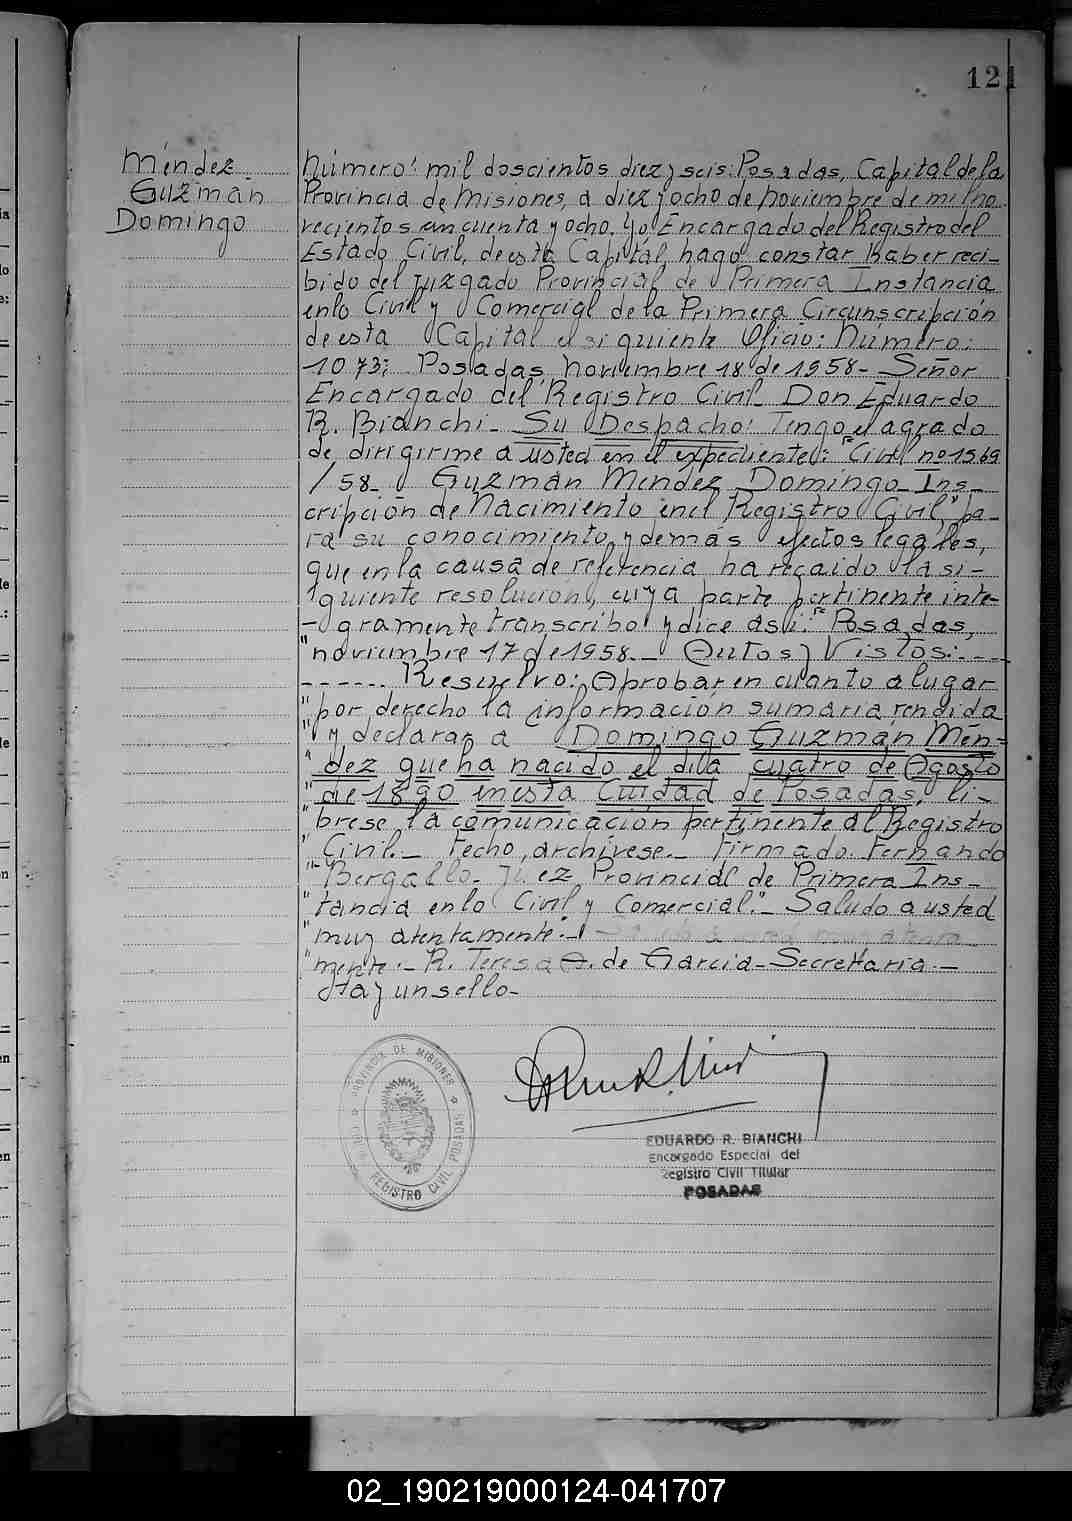 121
Méndez
Guzmán
Domingo
Número: mil doscientos diez y seis: Posadas, Capital de la
Provincia de Misiones, a diez y ocho de noviembre de mil no-
vecientos cincuenta y ocho. Yo Encargado del Registro del
Estado Civil, de esta Capital, hago constar haber reci-
bido del Juzgado Provincial de Primera Instancia
en lo Civil y Comercial de la Primera Circunscripción
de esta Capital el siguiente Oficio: Número:
1073; Posadas, noviembre 18 de 1958- Señor
Encargado del Registro Civil- Don Eduardo
R. Bianchi- Su Despacho: Tengo el agrado
de dirigirme a usted en el expediente: "Civil nº 1969
/58- Guzmán Mendez Domingo- Ins-
cripción de Nacimiento en el Registro Civil", pa-
ra su conocimiento y demás efectos legales,
que en la causa de referencia ha recaido la si-
guiente resolución, cuya parte pertinente inte-
-gramente transcribo y dice asi: "Posadas,
"noviembre 17 de 1958.- Autos y Vistos:----
------ Resuelvo: Aprobar en cuanto a lugar
"por derecho la información sumaria rendida
"y declarar a Domingo Guzmán Mén-
"dez que ha nacido el dia cuatro de Agosto
"de 1890 en esta Ciudad de Posadas, li-
"brese la comunicación pertinente al Registro
"Civil.- Fecho, archivese.- Firmado. Fernando
"Bergallo- Juez Provincial de Primera Ins-
"tancia en lo Civil y Comercial."- Saludo a usted
"muy atentamente.-
"mente.- R. Teresa A. de Garcia- Secretaria.-
Hay un sello-
PROVINCIA DE MISIONES
REGISTRO CIVIL POSADAS
EDUARDO R. BIANCHI
Encargado Especial del
Registro Civil Titular
POSADAS
02_190219000124-041707